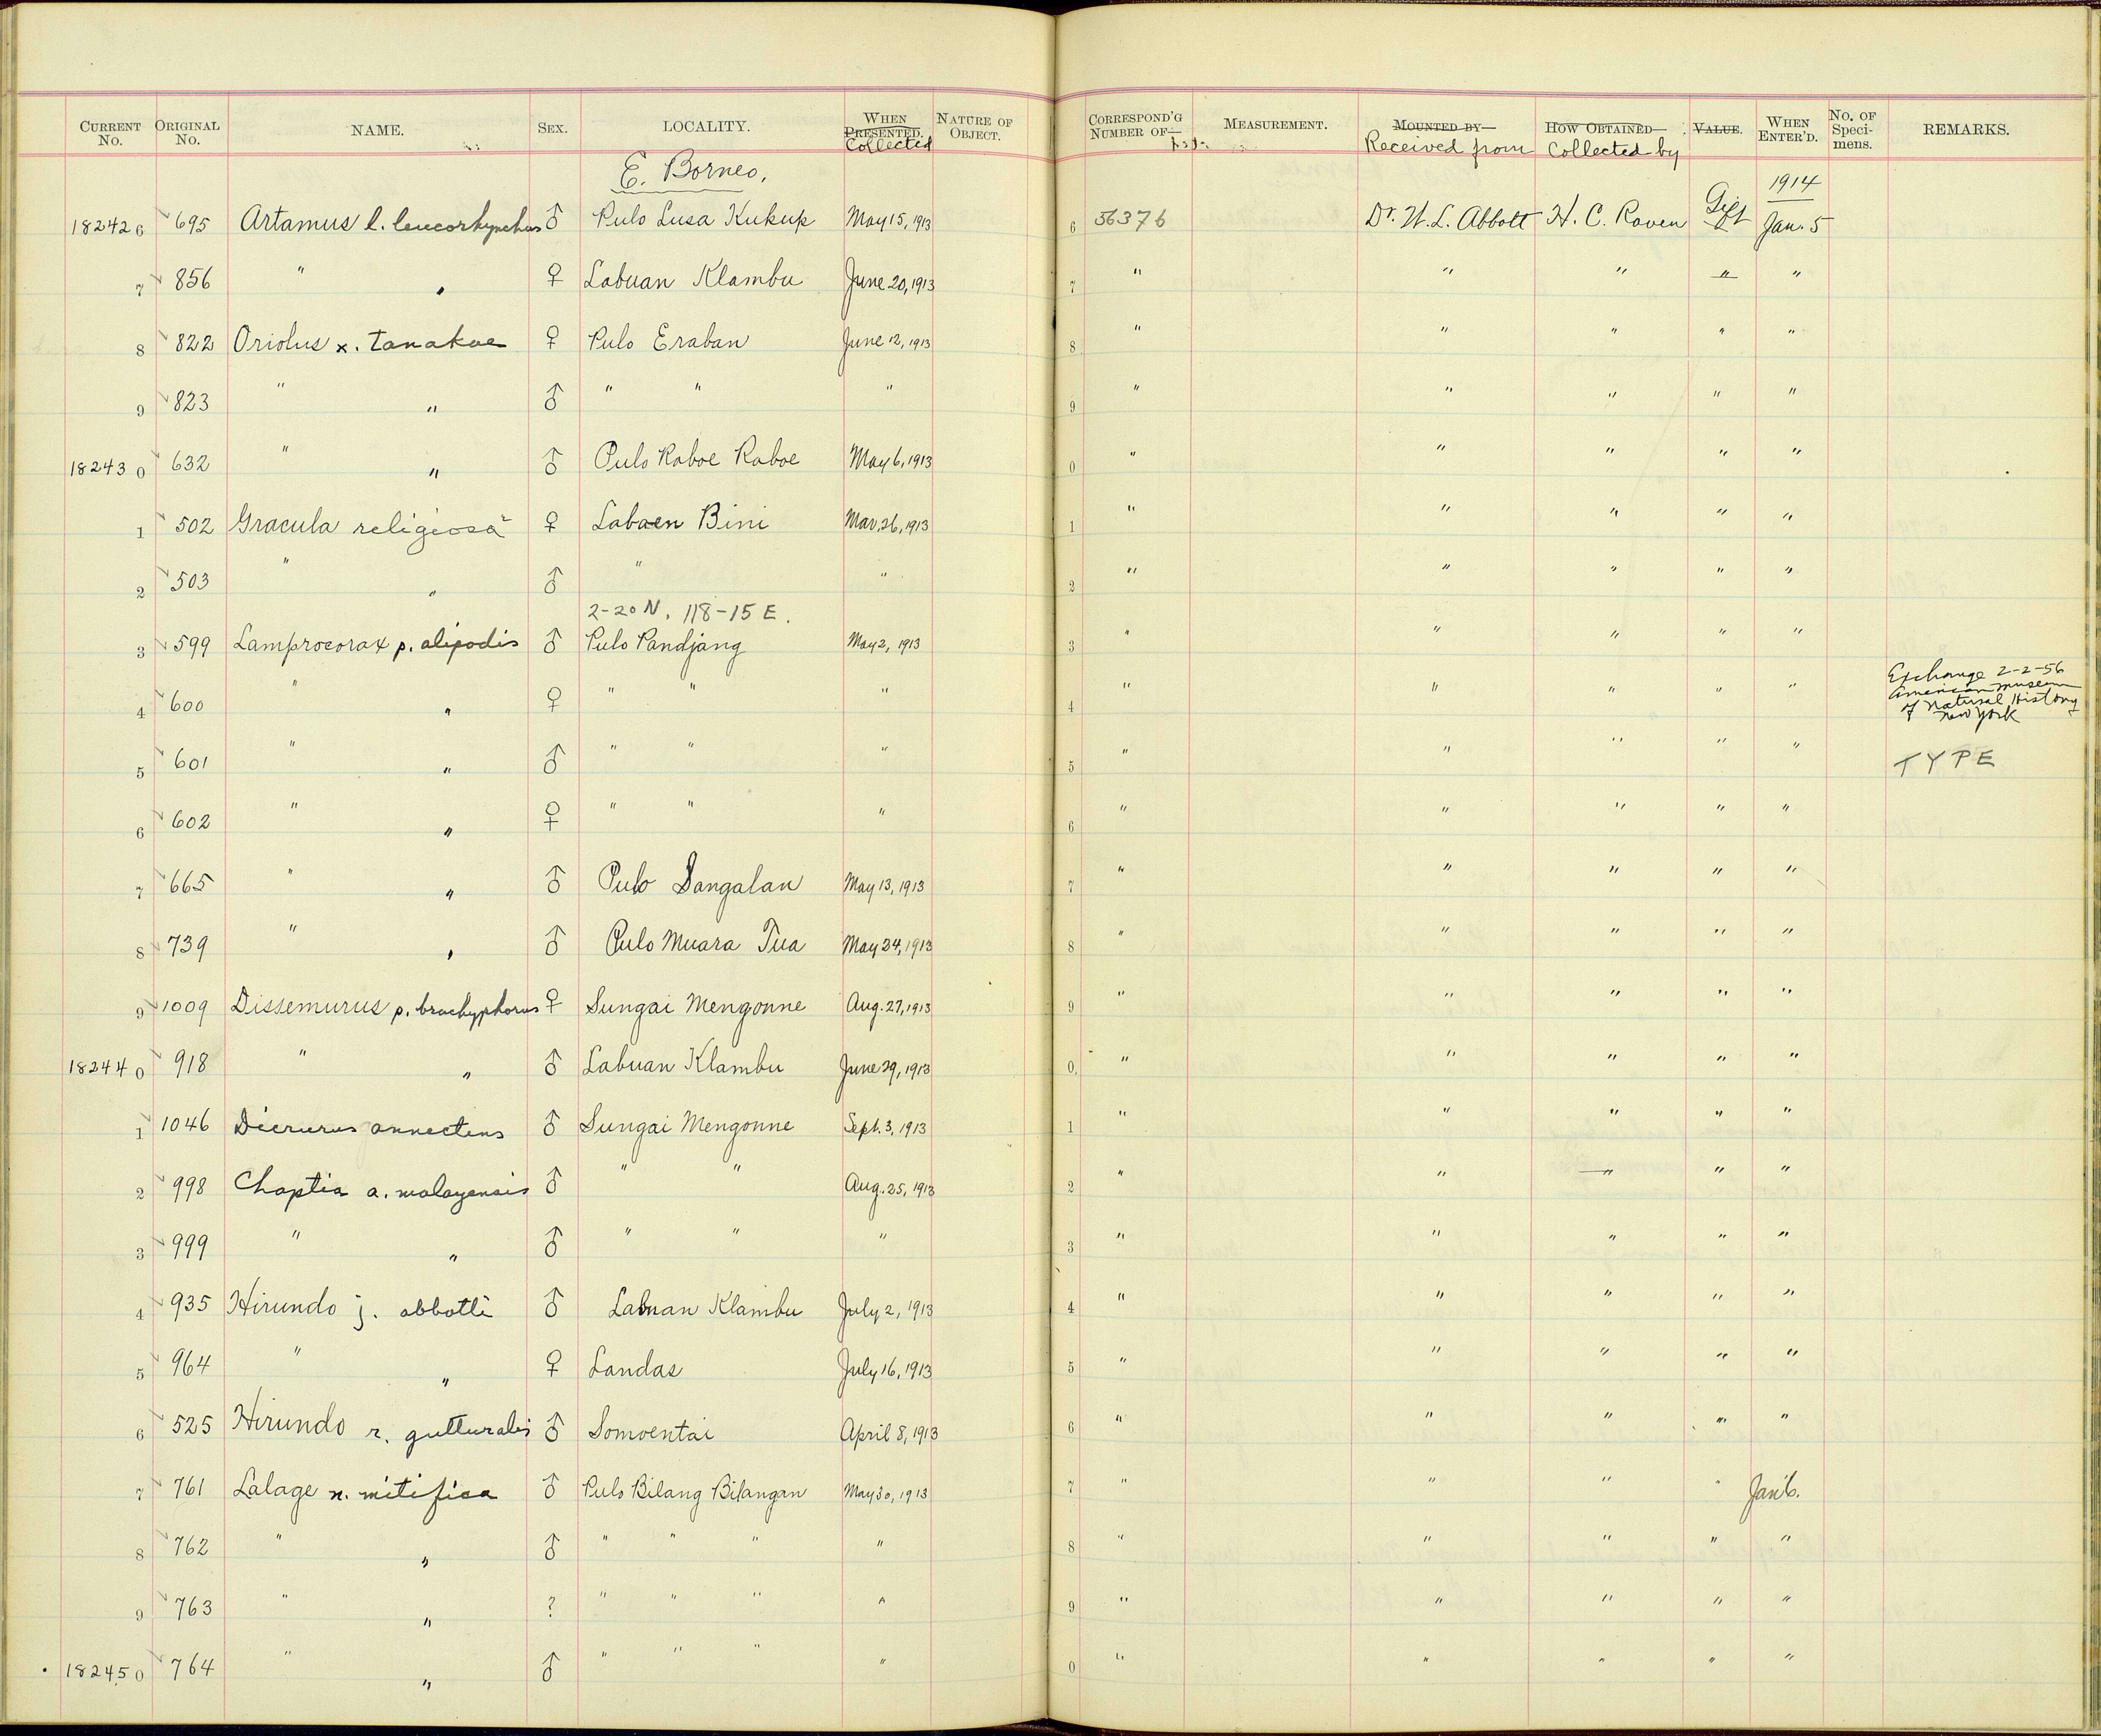 CURRENT No. ORIGINAL No. NAME. SEX. LOCALITY. WHEN PRESENTED. Collected NATURE OF OBJECT. CORRESPOND'G NUMBER OF— MEASUREMENT. MOUNTED BY— Received from HOW OBTAINED— Collected by VALUE. WHEN ENTER'D. No. OF Speci-mens. REMARKS.
E. Borneo. 1914
182426 695 Artamus l. leucorhynchus ♂ Pulo Lusa Kukup May 15, 1913 6 56376 Dr. W. L. Abbott H. C. Raven Gift Jan. 5
7 856 " " ♀ Labuan Klambu June 20, 1913 7 " " " " "
8 822 Oriolus x. tanakae ♀ Pulo Eraban June 12, 1913 8 " " " " "
9 823 " " ♂ " " " 9 " " " " "
182430 632 " " ♂ Pulo Raboe Raboe May 6, 1913 0 " " " " "
1 502 Gracula religiosa ♀ Labaen Bini Mar. 26, 1913 1 " " " " "
2 503 " " ♂ " " 2 " " " " "
2-20 N. 118-15 E.
3 599 Lamprocorax p. alipodis ♂ Pulo Pandjang May 2, 1913 3 " " " " "
4 600 " " ♀ " " " 4 " " " " " Exchange 2-2-56 American museum of Natural History New York
5 601 " " ♂ " " " 5 " " " " " TYPE
6 602 " " ♀ " " " 6 " " " " "
7 665 " " ♂ Pulo Sangalan May 13, 1913 7 " " " " "
8 739 " " ♂ Pulo Muara Tua May 24, 1913 8 " " " " "
9 1009 Dissemurus p. brachyphorus ♀ Sungai Mengonne Aug. 27, 1913 9 " " " " "
182440 918 " " ♂ Labuan Klambu June 29, 1913 0 " " " " "
1 1046 Dicrurus annectens ♂ Sungai Mengonne Sept. 3, 1913 1 " " " " "
2 998 Chaptia a. malayensis ♂ " " Aug. 25, 1913 2 " " " " "
3 999 " " ♂ " " " 3 " " " " "
4 935 Hirundo j. abbotti ♂ Labuan Klambu July 2, 1913 4 " " " " "
5 964 " " ♀ Landas July 16, 1913 5 " " " " "
6 525 Hirundo r. gutturalis ♂ Somoentai April 8, 1913 6 " " " " "
7 761 Lalage n. mitifica ♂ Pulo Bilang Bilangan May 30, 1913 7 " " " " Jan 6.
8 762 " " ♂ " " " " 8 " " " " "
9 763 " " ? " " " " 9 " " " " "
182450 764 " " ♂ " " " " 0 " " " " "